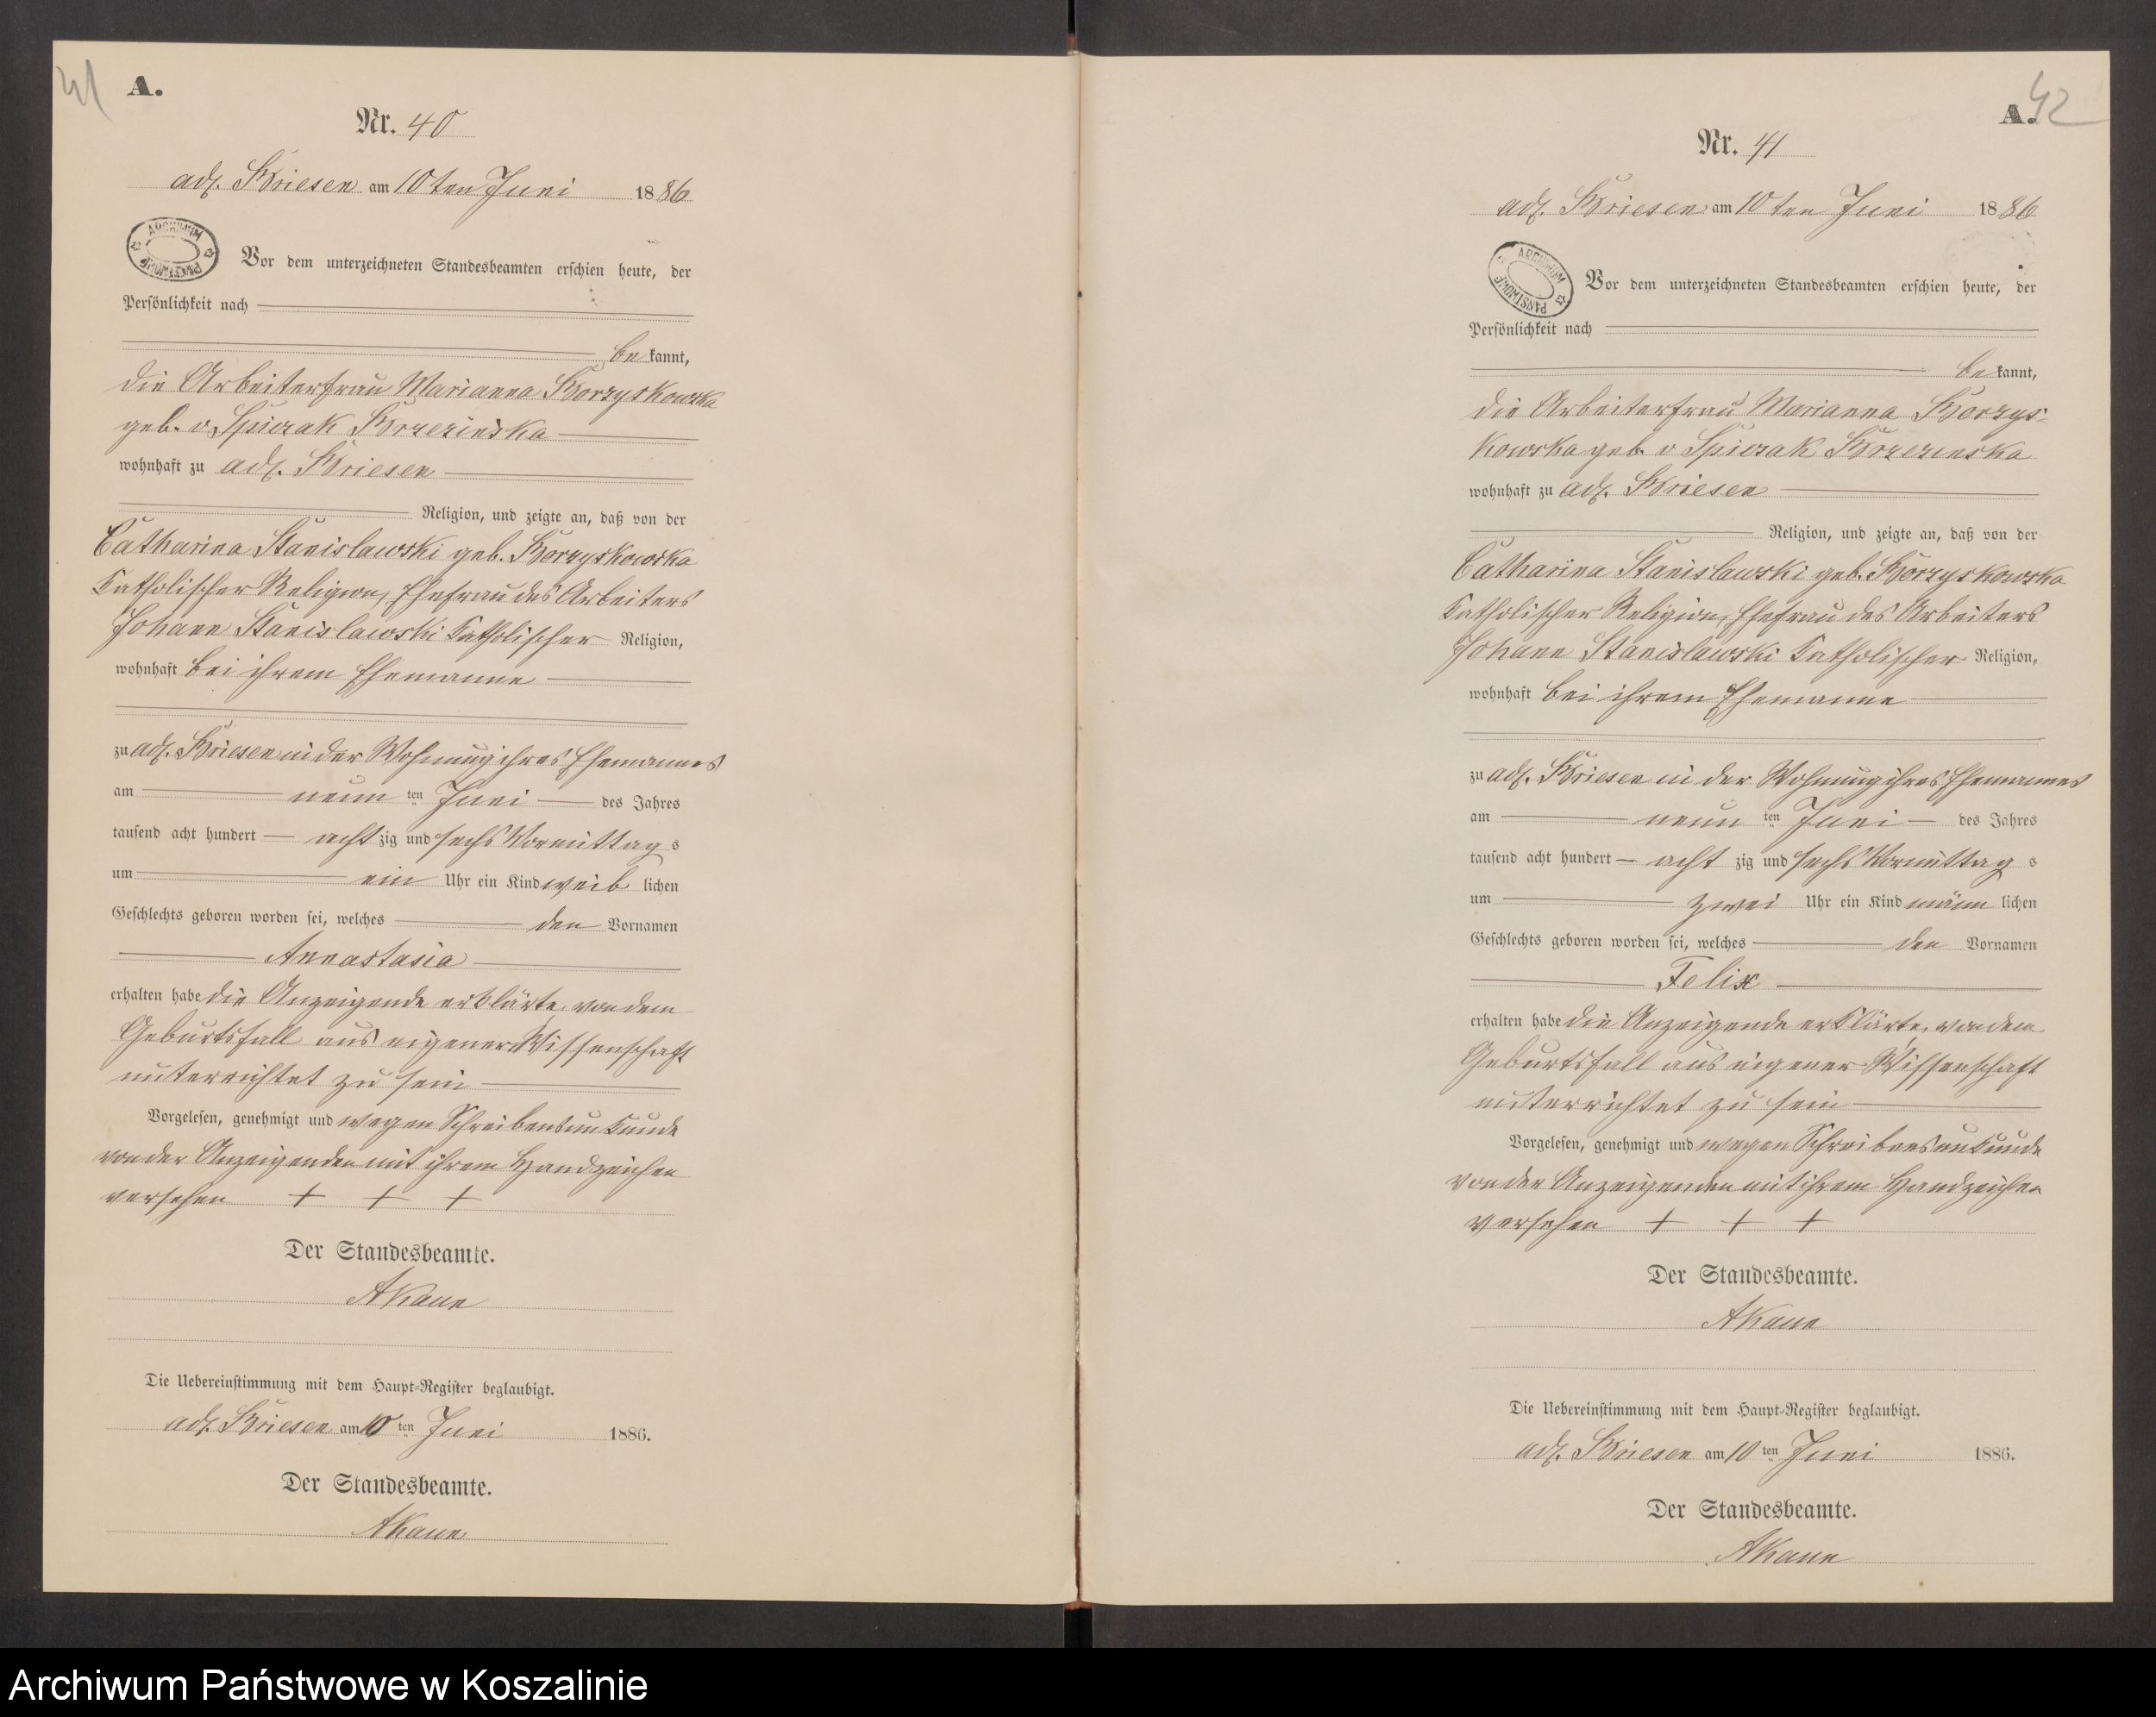 41
A.
Nr. 40
adl. Briesen am 10ten Juni 1886
ARCHIWUM PAŃSTWOWE
Vor dem unterzeichneten Standesbeamten erschien heute, der
Persönlichkeit nach
bekannt,
die Arbeiterfrau Marianna Borzyskowska
geb. v Spiczak Brzezinska
wohnhaft zu adl. Briesen
Religion, und zeigte an, daß von der
Catharina Stanislawski geb. Borzyskowska
katholischer Religion, Ehefrau des Arbeiters
Johann Stanislawski katholischer Religion,
wohnhaft bei ihrem Ehemanne
zu adl. Briesen in der Wohnung ihres Ehemannes
am neun ten Juni des Jahres
tausend acht hundert acht zig und sechs Vormittag s
um ein Uhr ein Kind weib lichen
Geschlechts geboren worden sei, welches den Vornamen
Annastasia
erhalten habe die Anzeigende erklärte, von dem
Geburtsfall aus eigener Wissenschaft
unterrichtet zu sein
Vorgelesen, genehmigt und wegen Schreibensunkunde
von der Anzeigenden mit ihrem Handzeichen
versehen + + +
Der Standesbeamte.
AKaun
Die Uebereinstimmung mit dem Haupt-Register beglaubigt.
adl. Briesen am 10 ten Juni 1886.
Der Standesbeamte.
AKaun
42
A.
Nr. 41
adl. Briesen am 10ten Juni 1886
ARCHIWUM PAŃSTWOWE
Vor dem unterzeichneten Standesbeamten erschien heute, der
Persönlichkeit nach
bekannt,
die Arbeiterfrau Marianna Borzys-
kowska geb. v Spiczak Brzezinska
wohnhaft zu adl. Briesen
Religion, und zeigte an, daß von der
Catharina Stanislawski geb. Borzyskowska
katholischer Religion, Ehefrau des Arbeiters
Johann Stanislawski katholischer Religion,
wohnhaft bei ihrem Ehemanne
zu adl. Briesen in der Wohnung ihres Ehemannes
am neun ten Juni des Jahres
tausend acht hundert acht zig und sechs Vormittag s
um zwei Uhr ein Kind männ lichen
Geschlechts geboren worden sei, welches den Vornamen
Felix
erhalten habe die Anzeigende erklärte, von dem
Geburtsfall aus eigener Wissenschaft
unterrichtet zu sein
Vorgelesen, genehmigt und wegen Schreibensunkunde
von der Anzeigenden mit ihrem Handzeichen
versehen + + +
Der Standesbeamte.
AKaun
Die Uebereinstimmung mit dem Haupt-Register beglaubigt.
adl. Briesen am 10 ten Juni 1886.
Der Standesbeamte.
AKaun
Archiwum Państwowe w Koszalinie